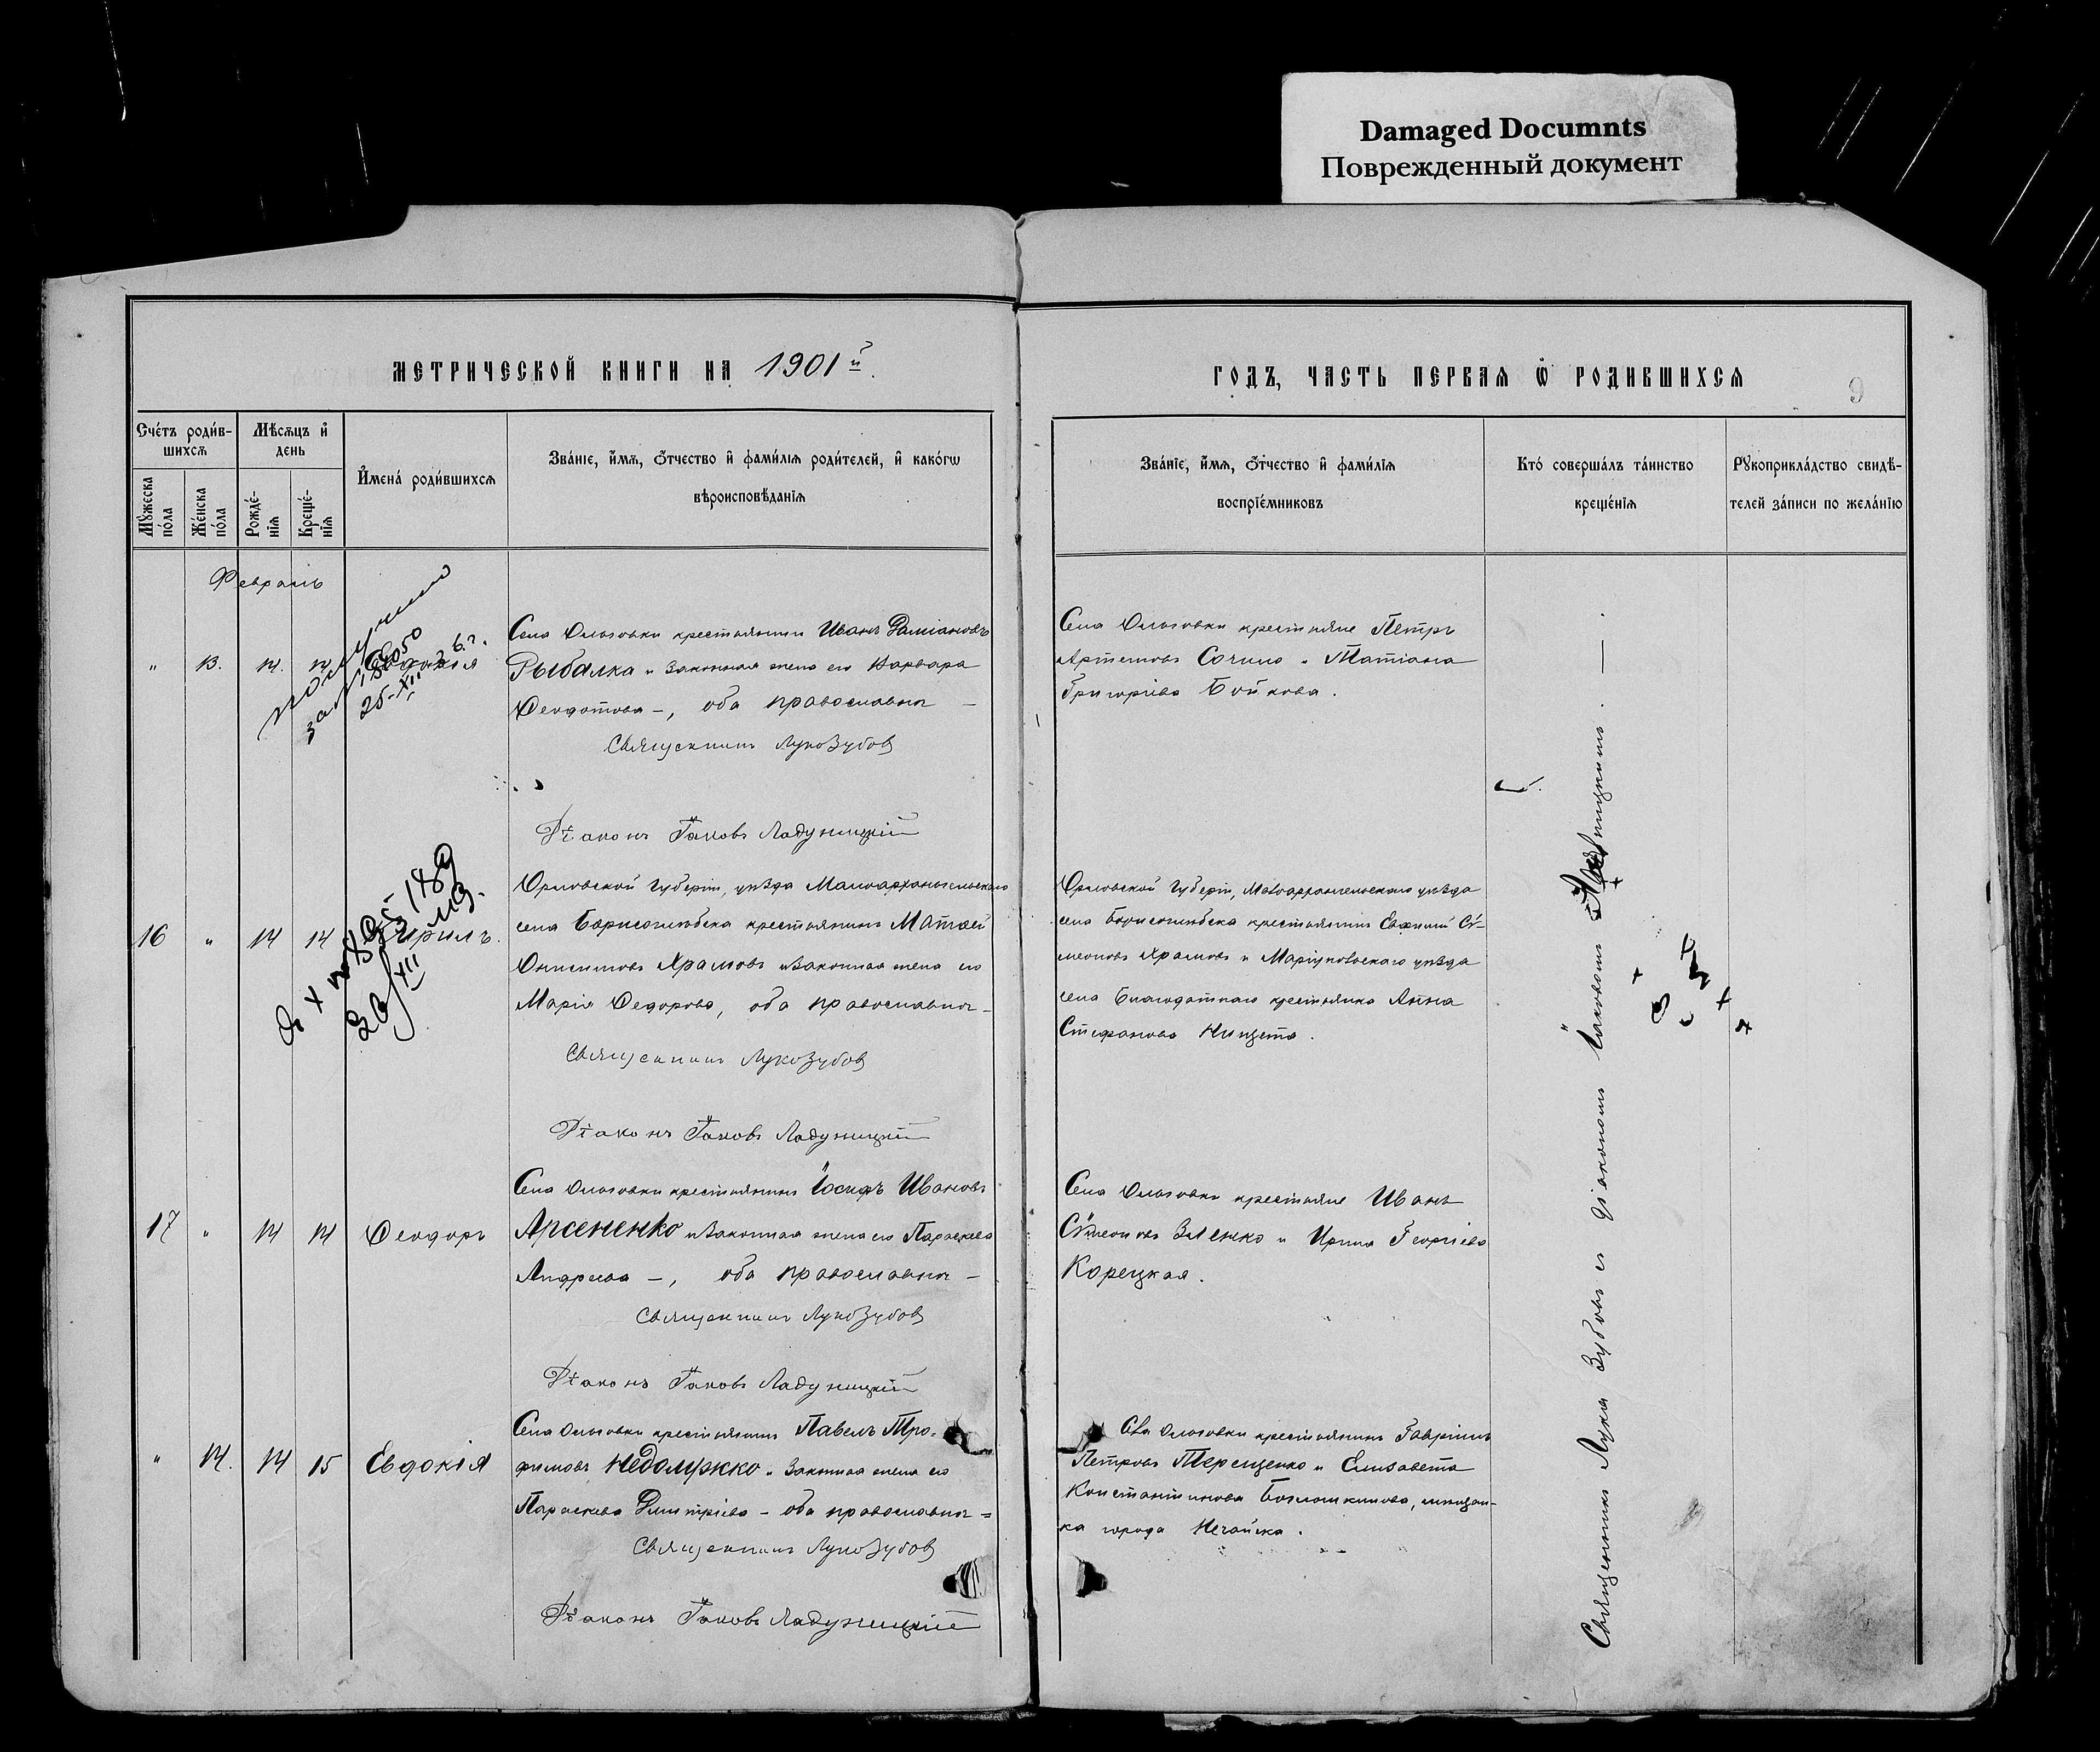 Damaged Documnts
Поврежденный документ
МЕТРИЧЕСКОЙ КНИГИ НА 1901й.
ГОДЪ, ЧАСТЬ ПЕРВАЯ Ѡ РОДИВШИХСЯ
9
Счетъ родив-
шихся
Мѣсяцъ и
день
Мужеска
пола
Женска
пола
Рожде-
нія
Креще-
нія
Имена родившихся
Званіе, имя, отчество и фамилія родителей, и какогѡ
вѣроисповѣданія
Званіе, имя, отчество и фамилія
воспріемниковъ
Кто совершалъ таинство
крещенія
Рукоприкладство свидѣ-
телей записи по желанію
Февраль
" 13.
25-XII
Села Ольговки крестьянинъ Иванъ Даміановъ
Рыбалка и законная жена его Варвара
Феодотова –, оба православны –
Священникъ Лука Зубов
Діаконъ Іаковъ Ладуницкій
Села Ольговки крестьяне Петръ
Артемовъ Сочило и Татіана
Григоріева Бойкова.
16 " 14 14 Кирилъ.
XII
Орловской губерніи, уѣзда Малоархангельскаго
села Борисоглѣбска крестьянинъ Матѳей
Онисимовъ Храмовъ и законная жена его
Марія Федорова, оба православны –
Священникъ Лука Зубов
Діаконъ Іаковъ Ладуницкій
Орловской губерніи, Малоархангельскаго уѣзда
села Борисоглѣбска крестьянинъ Евфимій Си-
меоновъ Храмовъ и Маріупольскаго уѣзда
села Благодатнаго крестьянка Анна
Стефанова Нищета.
17 " 14 14 Феодоръ
Села Ольговки крестьянинъ Іосифъ Ивановъ
Арсененко и законная жена его Параскева
Андреева –, оба православны –
Священникъ Лука Зубов
Діаконъ Іаковъ Ладуницкій
Села Ольговки крестьяне Иванъ
Симеоновъ Зленко и Ирина Георгіева
Корецкая.
" 14. 14 15 Евдокія
Села Ольговки крестьянинъ Павелъ Тро-
фимовъ Недолужко и законная жена его
Параскева Димитріева – оба православны =
Священникъ Лука Зубов
Діаконъ Іаковъ Ладуницкій
Села Ольговки крестьянинъ Гавріилъ
Петровъ Терещенко и Елизавета
Константинова, мѣщан-
ка города.
Священникъ Лука Зубовъ съ діакономъ Іаковомъ Ладуницкимъ.